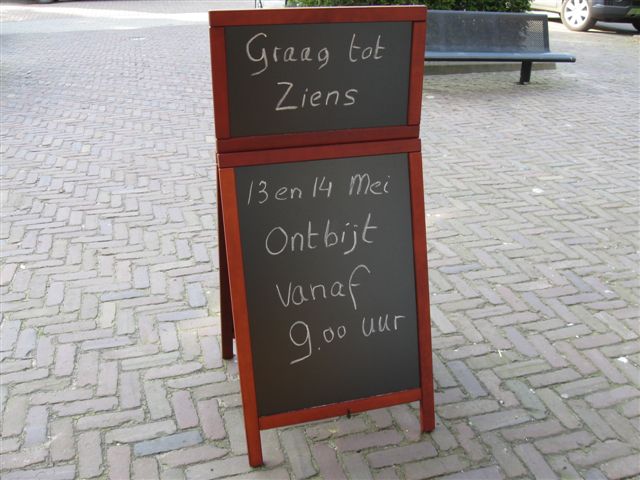 Graag tot
Ziens
13 en 14 Mei
Ontbijt
vanaf
9.00 uur